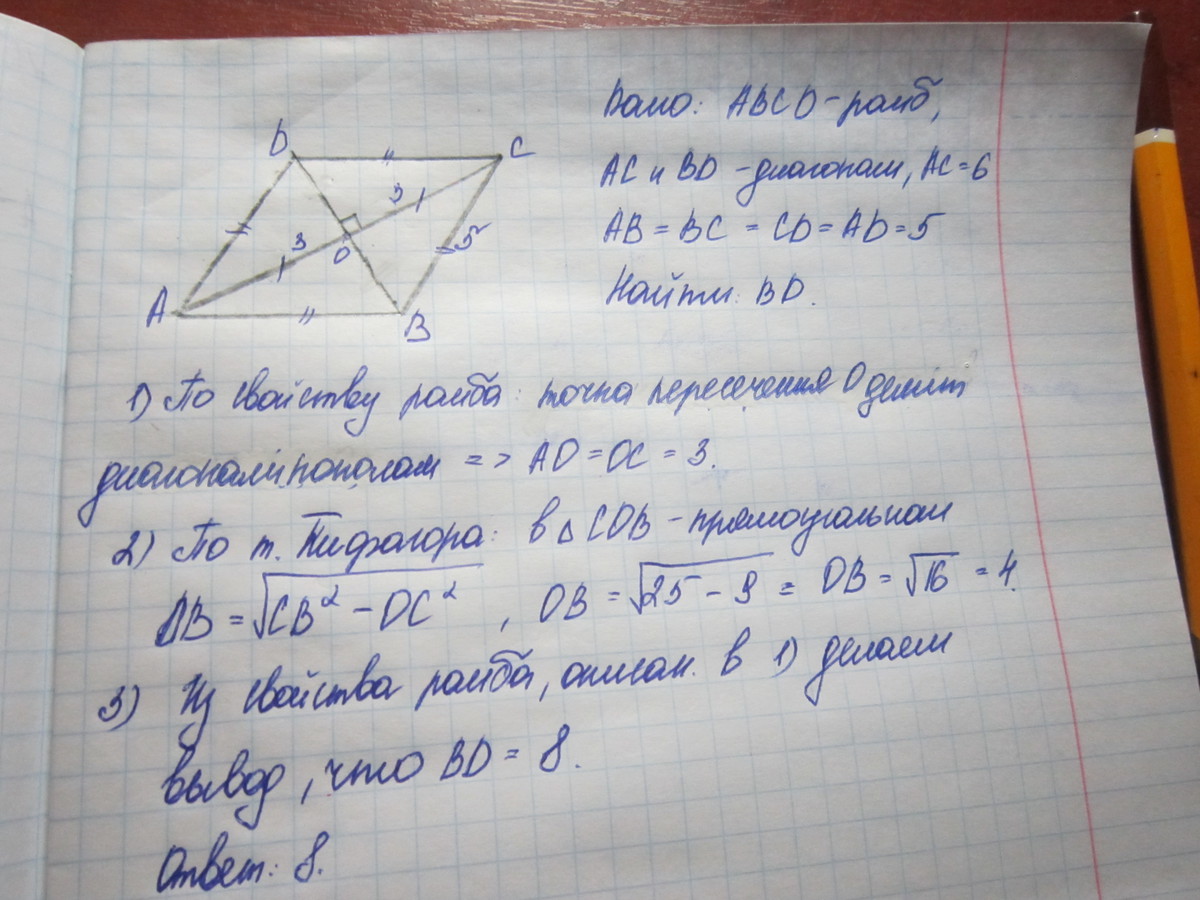 D
C
3
3
O
5
A
B
Дано: ABCD - ромб,
AC и BD - диагонали, AC = 6
AB = BC = CD = AD = 5
Найти: BD.
1) По свойству ромба: точка пересечения O делит
диагонали пополам => AO = OC = 3.
2) По т. Пифагора: в △ COB - прямоугольном
OB = √CB² - OC² , OB = √25 - 9 = OB = √16 = 4.
3) Из свойства ромба, описан. в 1) делаем
вывод, что BD = 8.
Ответ: 8.